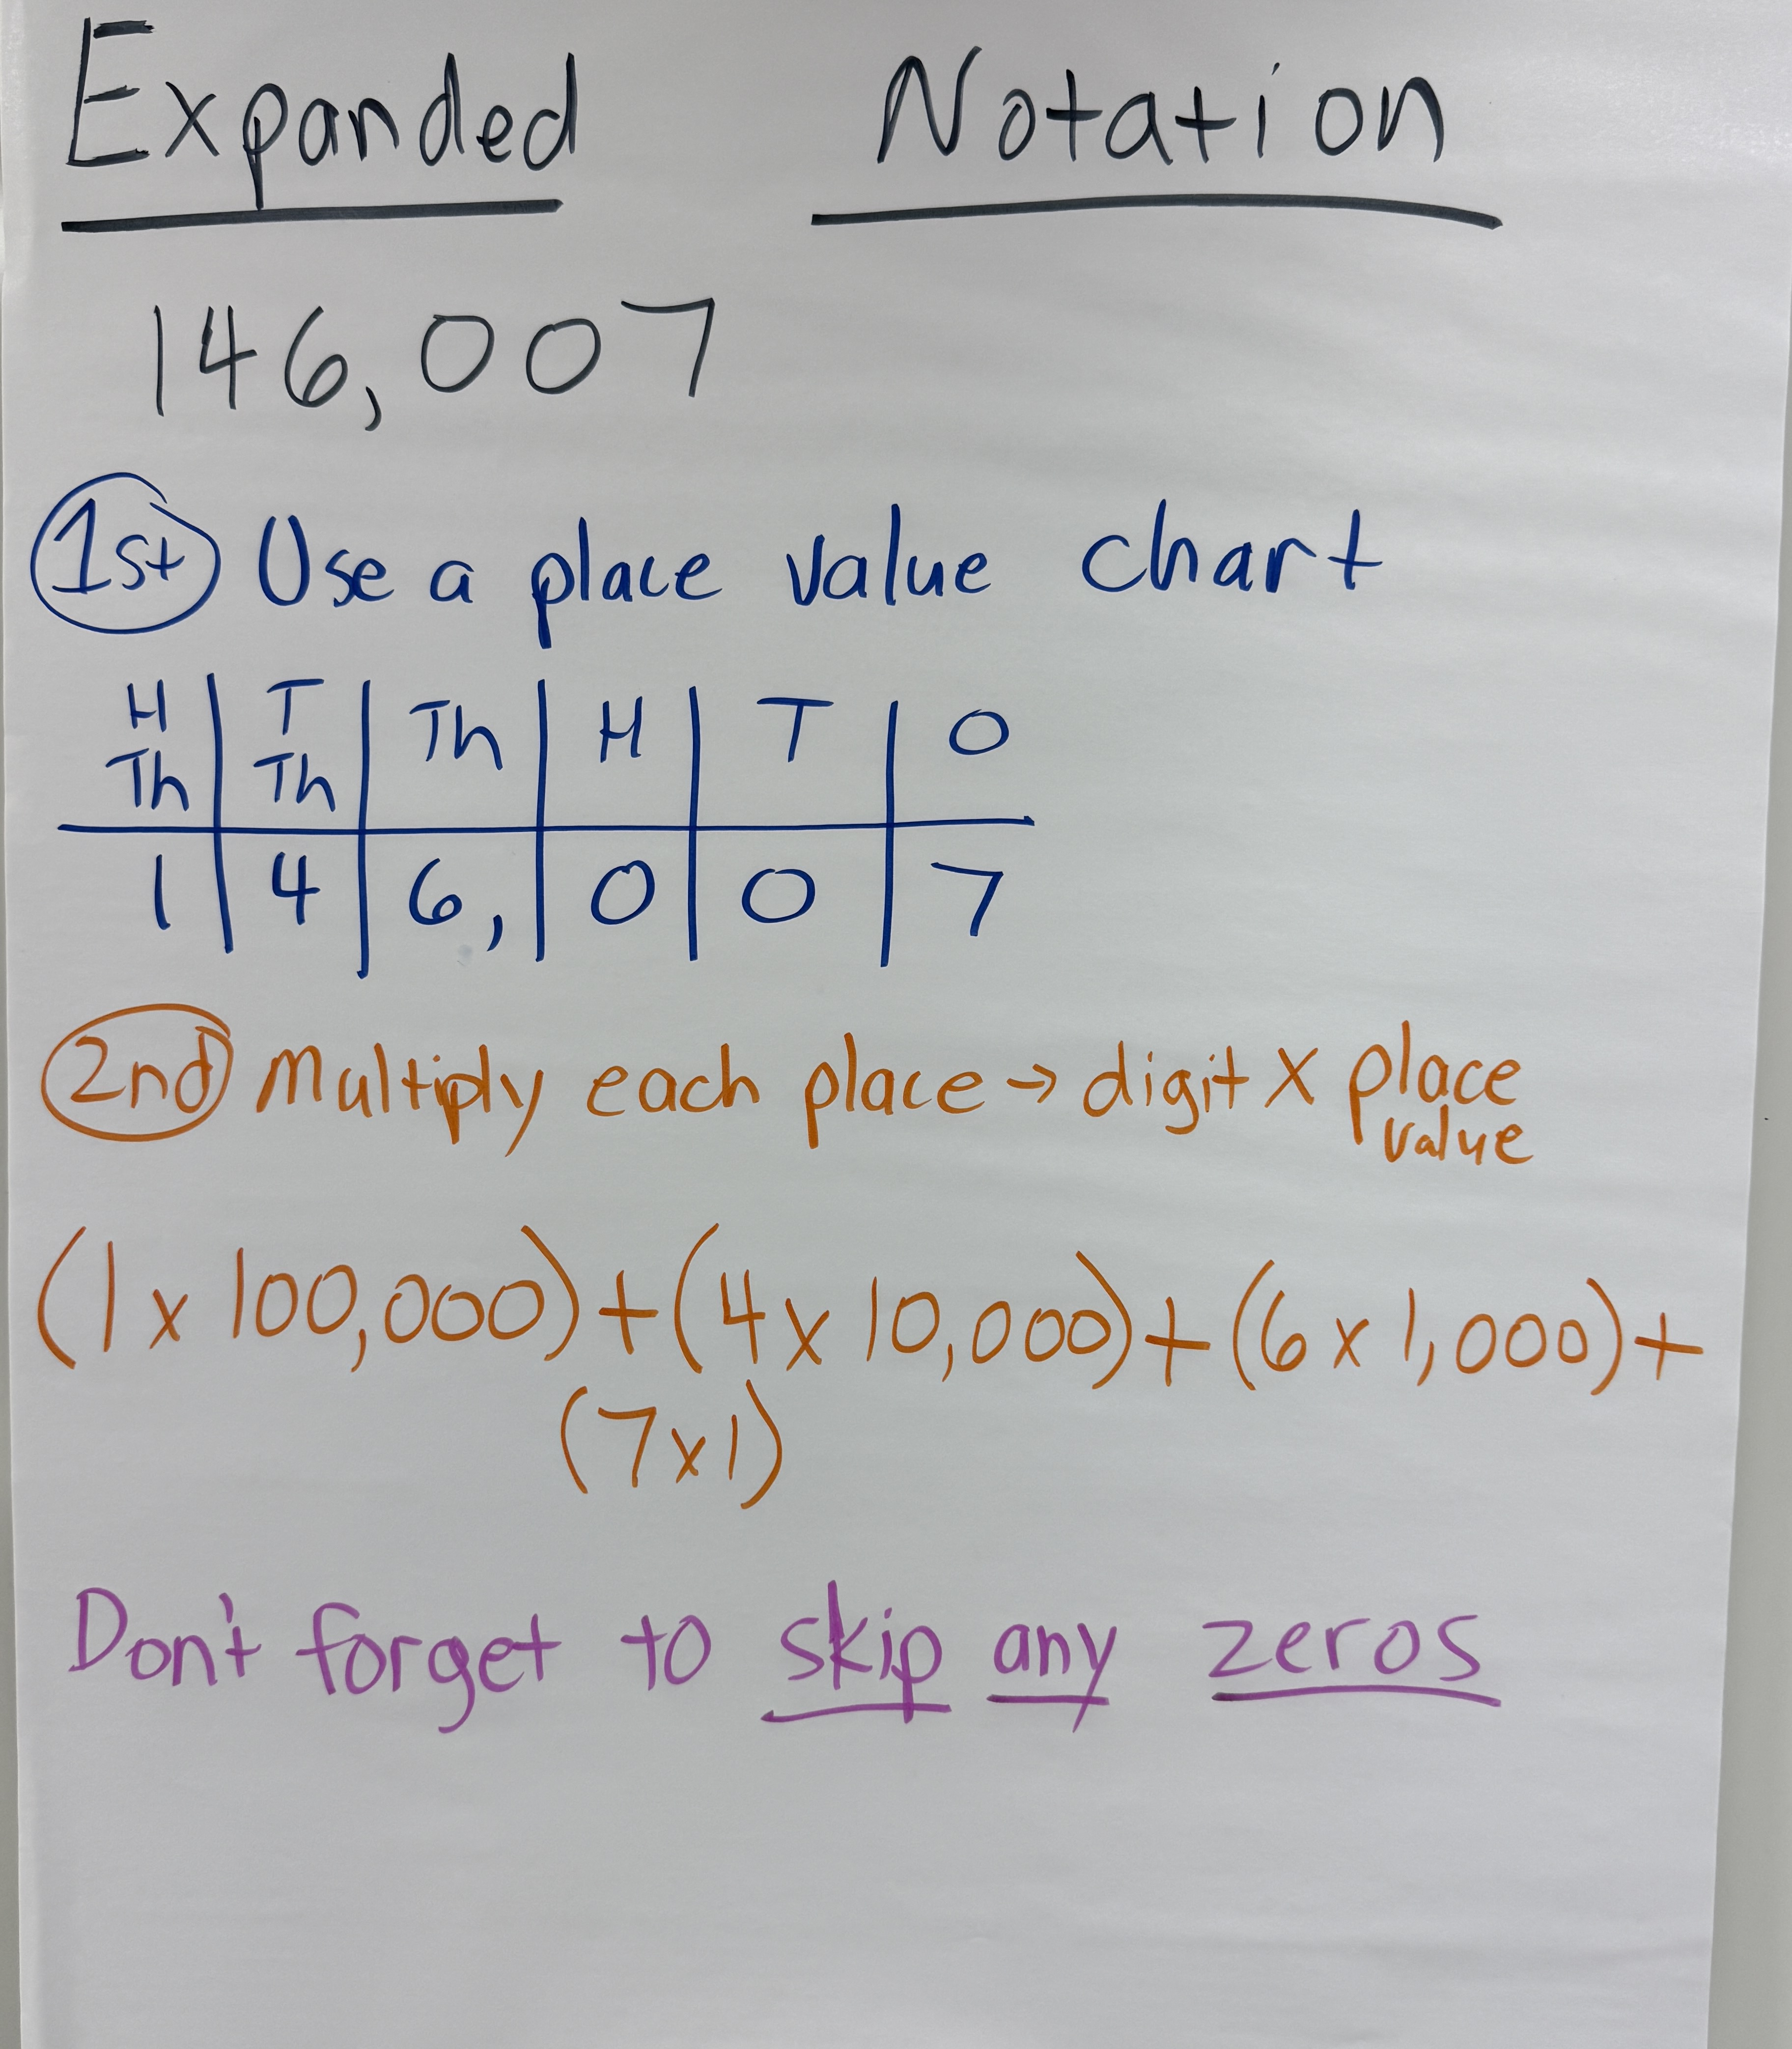 Expanded Notation
146,007
1st Use a place value chart
H T Th H T O
Th Th
1 4 6, 0 0 7
2nd Multiply each place → digit x place
value
(1 x 100,000) + (4 x 10,000) + (6 x 1,000) +
(7 x 1)
Don't forget to skip any zeros